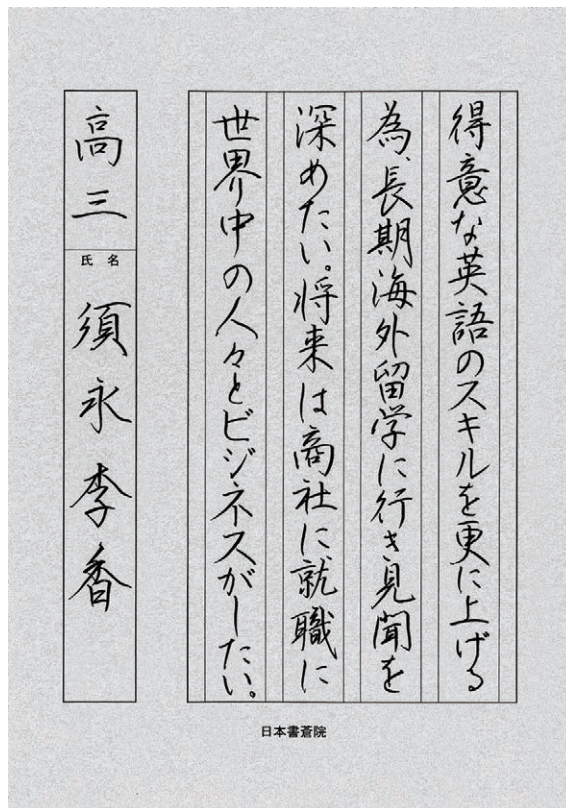 得意な英語のスキルを更に上げる
為、長期海外留学に行き見聞を
深めたい。将来は商社に就職に
世界中の人々とビジネスがしたい。
高三
氏名
須永李香
日本書蒼院